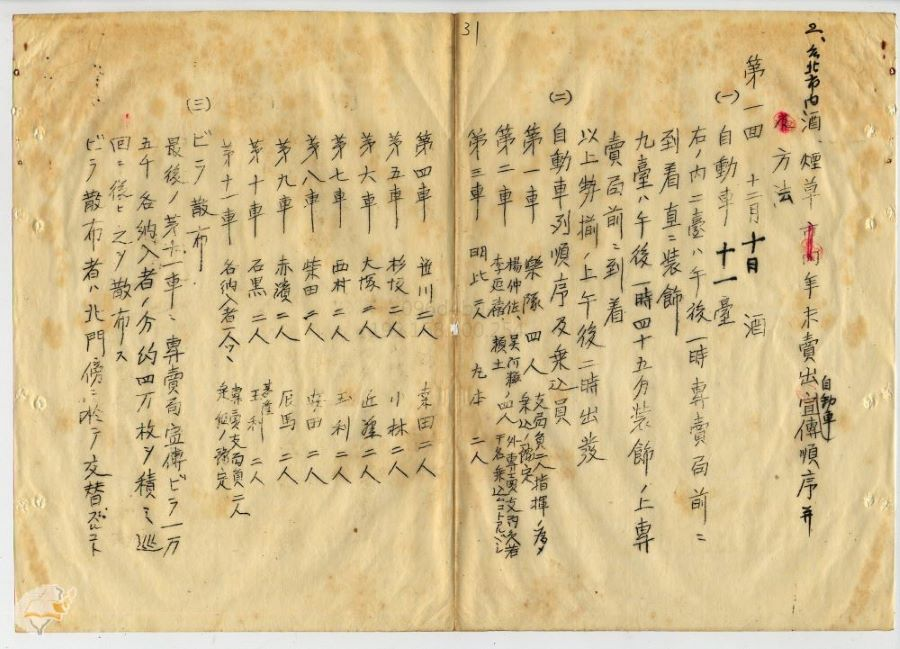 二、台北市内酒、煙草年末賣出自動車宣傳順序並
方法
第一回 十二月十日 酒
(一) 自動車 十一臺
右ノ内二臺ハ午後一時專賣局前ニ
到着直ニ裝飾
九臺ハ午後一時四十五分裝飾ノ上專
賣局前ニ到着
以上勢揃ノ上午後二時出發
(二) 自動車列順序及乘込員
第一車 樂隊 四人 支局員二人指揮ノ爲メ乘込ノ豫定
第二車 楊仲佐、吳阿 李延禧 賴土 ノ四人 外專賣支局 者 名乘込ムコトアルベシ
第三車 明比 二人 九本 二人
第四車 笹川 二人 桑田 二人
第五車 杉坂 二人 小林 二人
第六車 大塚 二人 近 二人
第七車 西村 二人 玉利 二人
第八車 柴田 二人 田 二人
第九車 赤濱 二人 辰馬 二人
第十車 石黑 二人 基隆 玉利 二人
第十一車 各納入者一人ツヽ 專賣支局員二人乘組ノ豫定
(三) ビラ散布
最後ノ第 車ニ專賣局宣傳ビラ一万
五千各納入者ノ分約四万枚ヲ積ミ巡
回ニ後ヒ之ヲ散布ス
ビラ散布者ハ北門傍ニ於テ交替スルコト
31